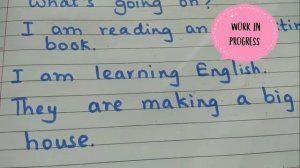 What's going on?
I am reading an
book.
I am learning English.
They are making a big
house.
WORK IN
PROGRESS